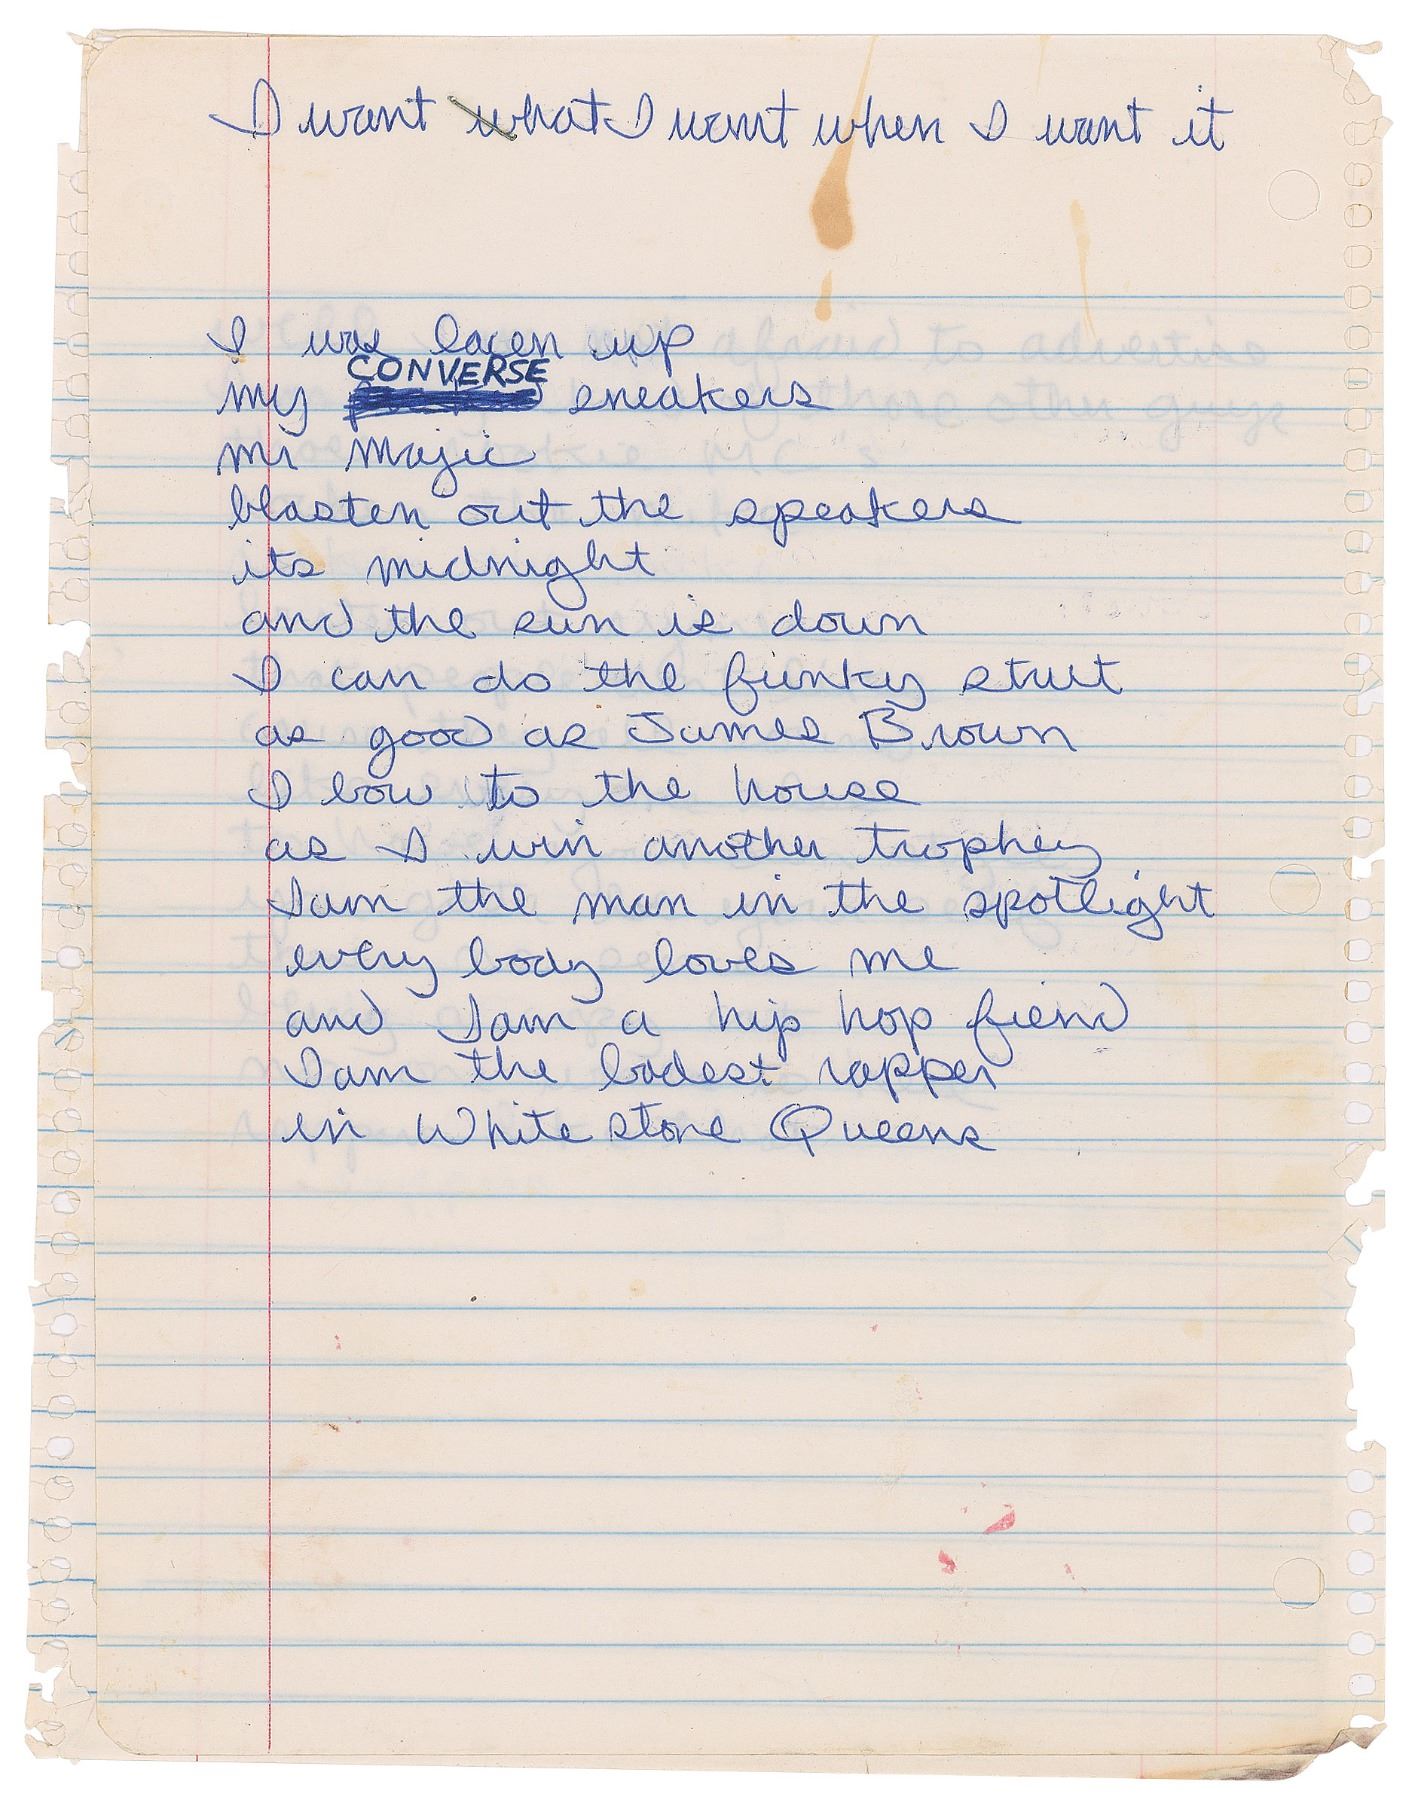 I want what I want when I want it
I was lacen up
my CONVERSE sneakers
mr Majic
blasten out the speakers
its midnight
and the sun is down
I can do the funky strut
as good as James Brown
I bow to the house
as I win another trophey
I am the man in the spotlight
every body loves me
and I am a hip hop fiend
I am the badest rapper
in White stone Queens